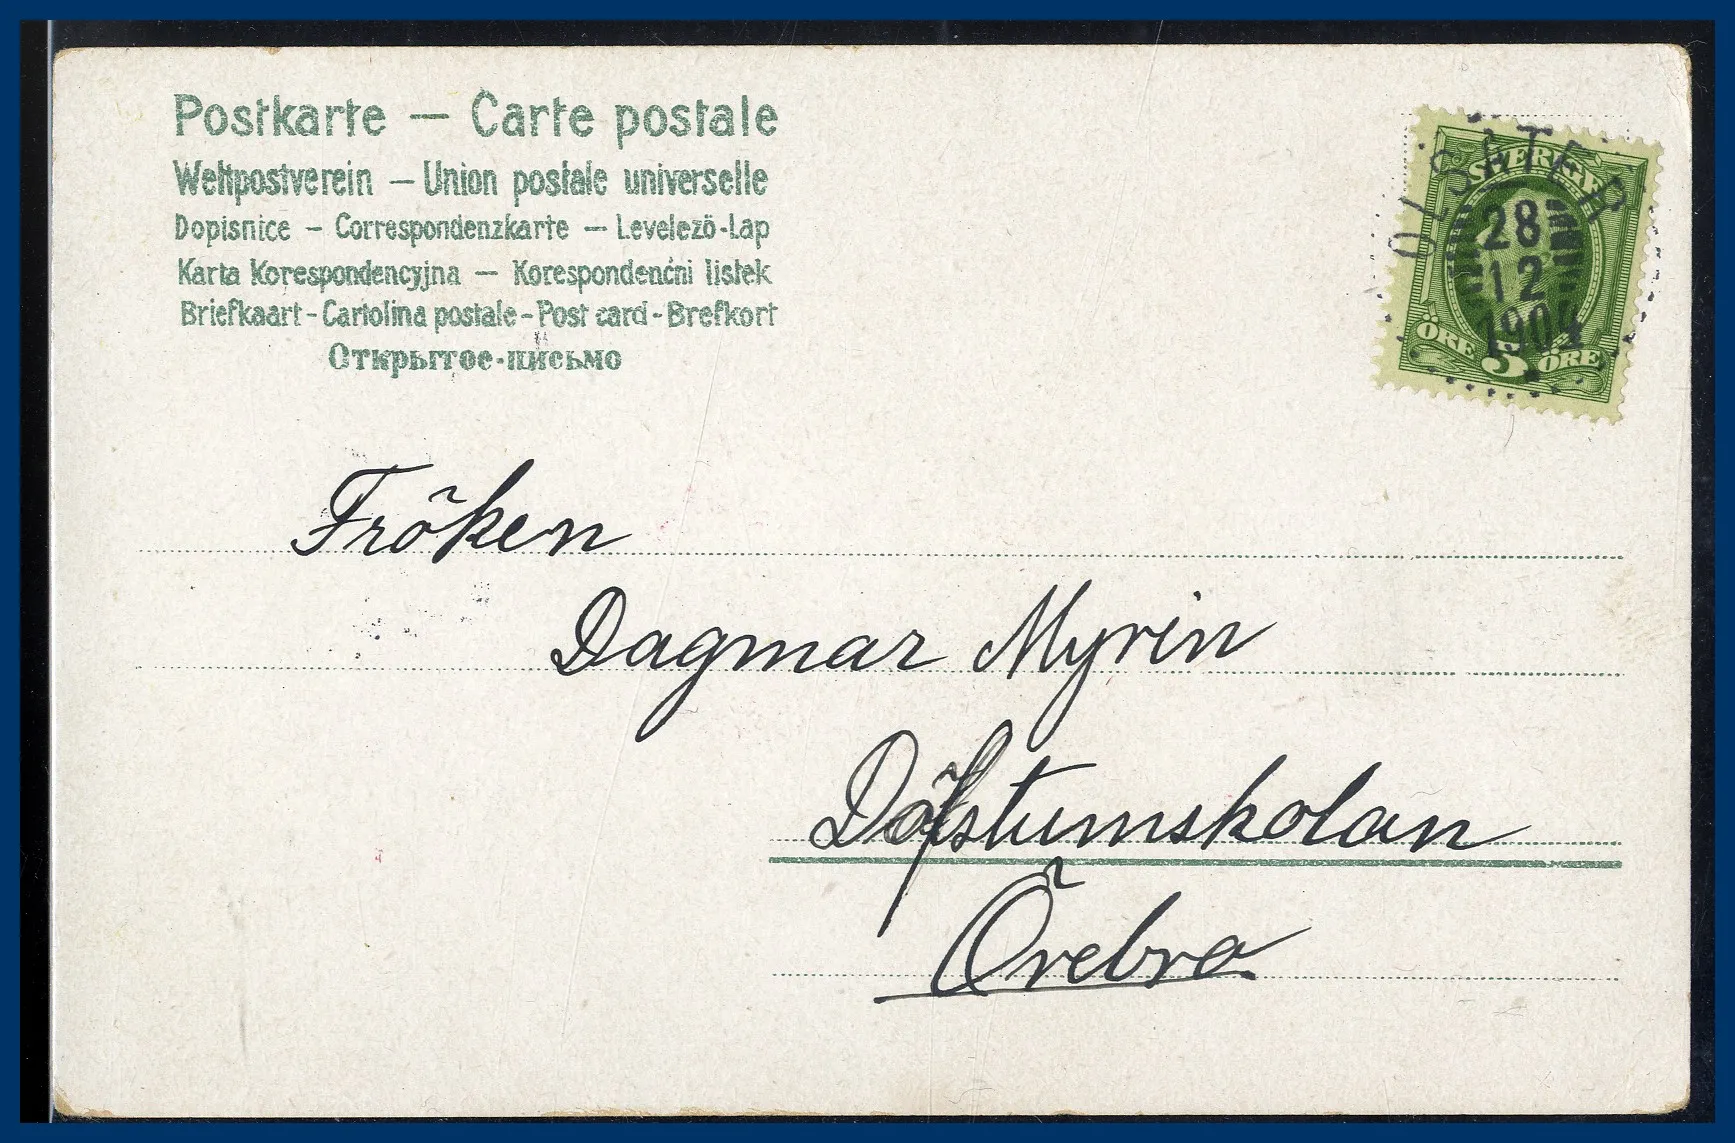 Postkarte — Carte postale
Weltpostverein — Union postale universelle
Dopisnice — Correspondenzkarte — Levelező-Lap
Karta Korespondencyjna — Korespondenćni listek
Briefkaart - Cartolina postale - Post card - Brefkort
Открытое-письмо
SVERIGE
28
12
1904
ÖRE 5 ÖRE
Fröken
Dagmar Myrin
Döfstumskolan
Örebro